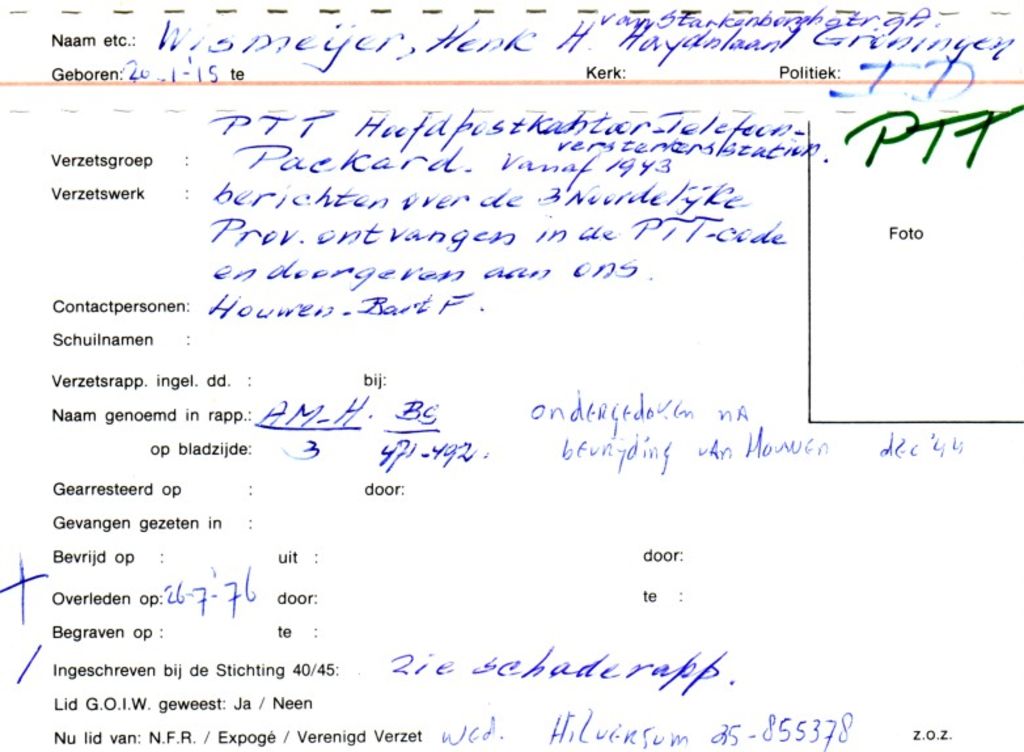 van Starkenborghstr. gr.
Naam etc.: Wismeijer, Henk H. Haydnlaan Groningen
Geboren: 20-1-'15 te Kerk: Politiek: ID
PTT Hoofdpostkantoor-Telefoon-
versterkersstation.
PTT
Verzetsgroep : Packard. vanaf 1943
Verzetswerk : berichten over de 3 Noordelijke
Prov. ontvangen in de PTT-code
Foto
en doorgeven aan ons.
Contactpersonen: Houwen - Bart F.
Schuilnamen :
Verzetsrapp. ingel. dd. : bij:
Naam genoemd in rapp.: AM-H. BS ondergedoken na
op bladzijde: 3 471-492. bevrijding van Houwen dec '44
Gearresteerd op : door:
Gevangen gezeten in :
Bevrijd op : uit : door:
Overleden op: 26-7-'76 door: te :
Begraven op : te :
Ingeschreven bij de Stichting 40/45: zie schaderapp.
Lid G.O.I.W. geweest: Ja / Neen
Nu lid van: N.F.R. / Expogé / Verenigd Verzet wed. Hilversum 35-855378 z.o.z.